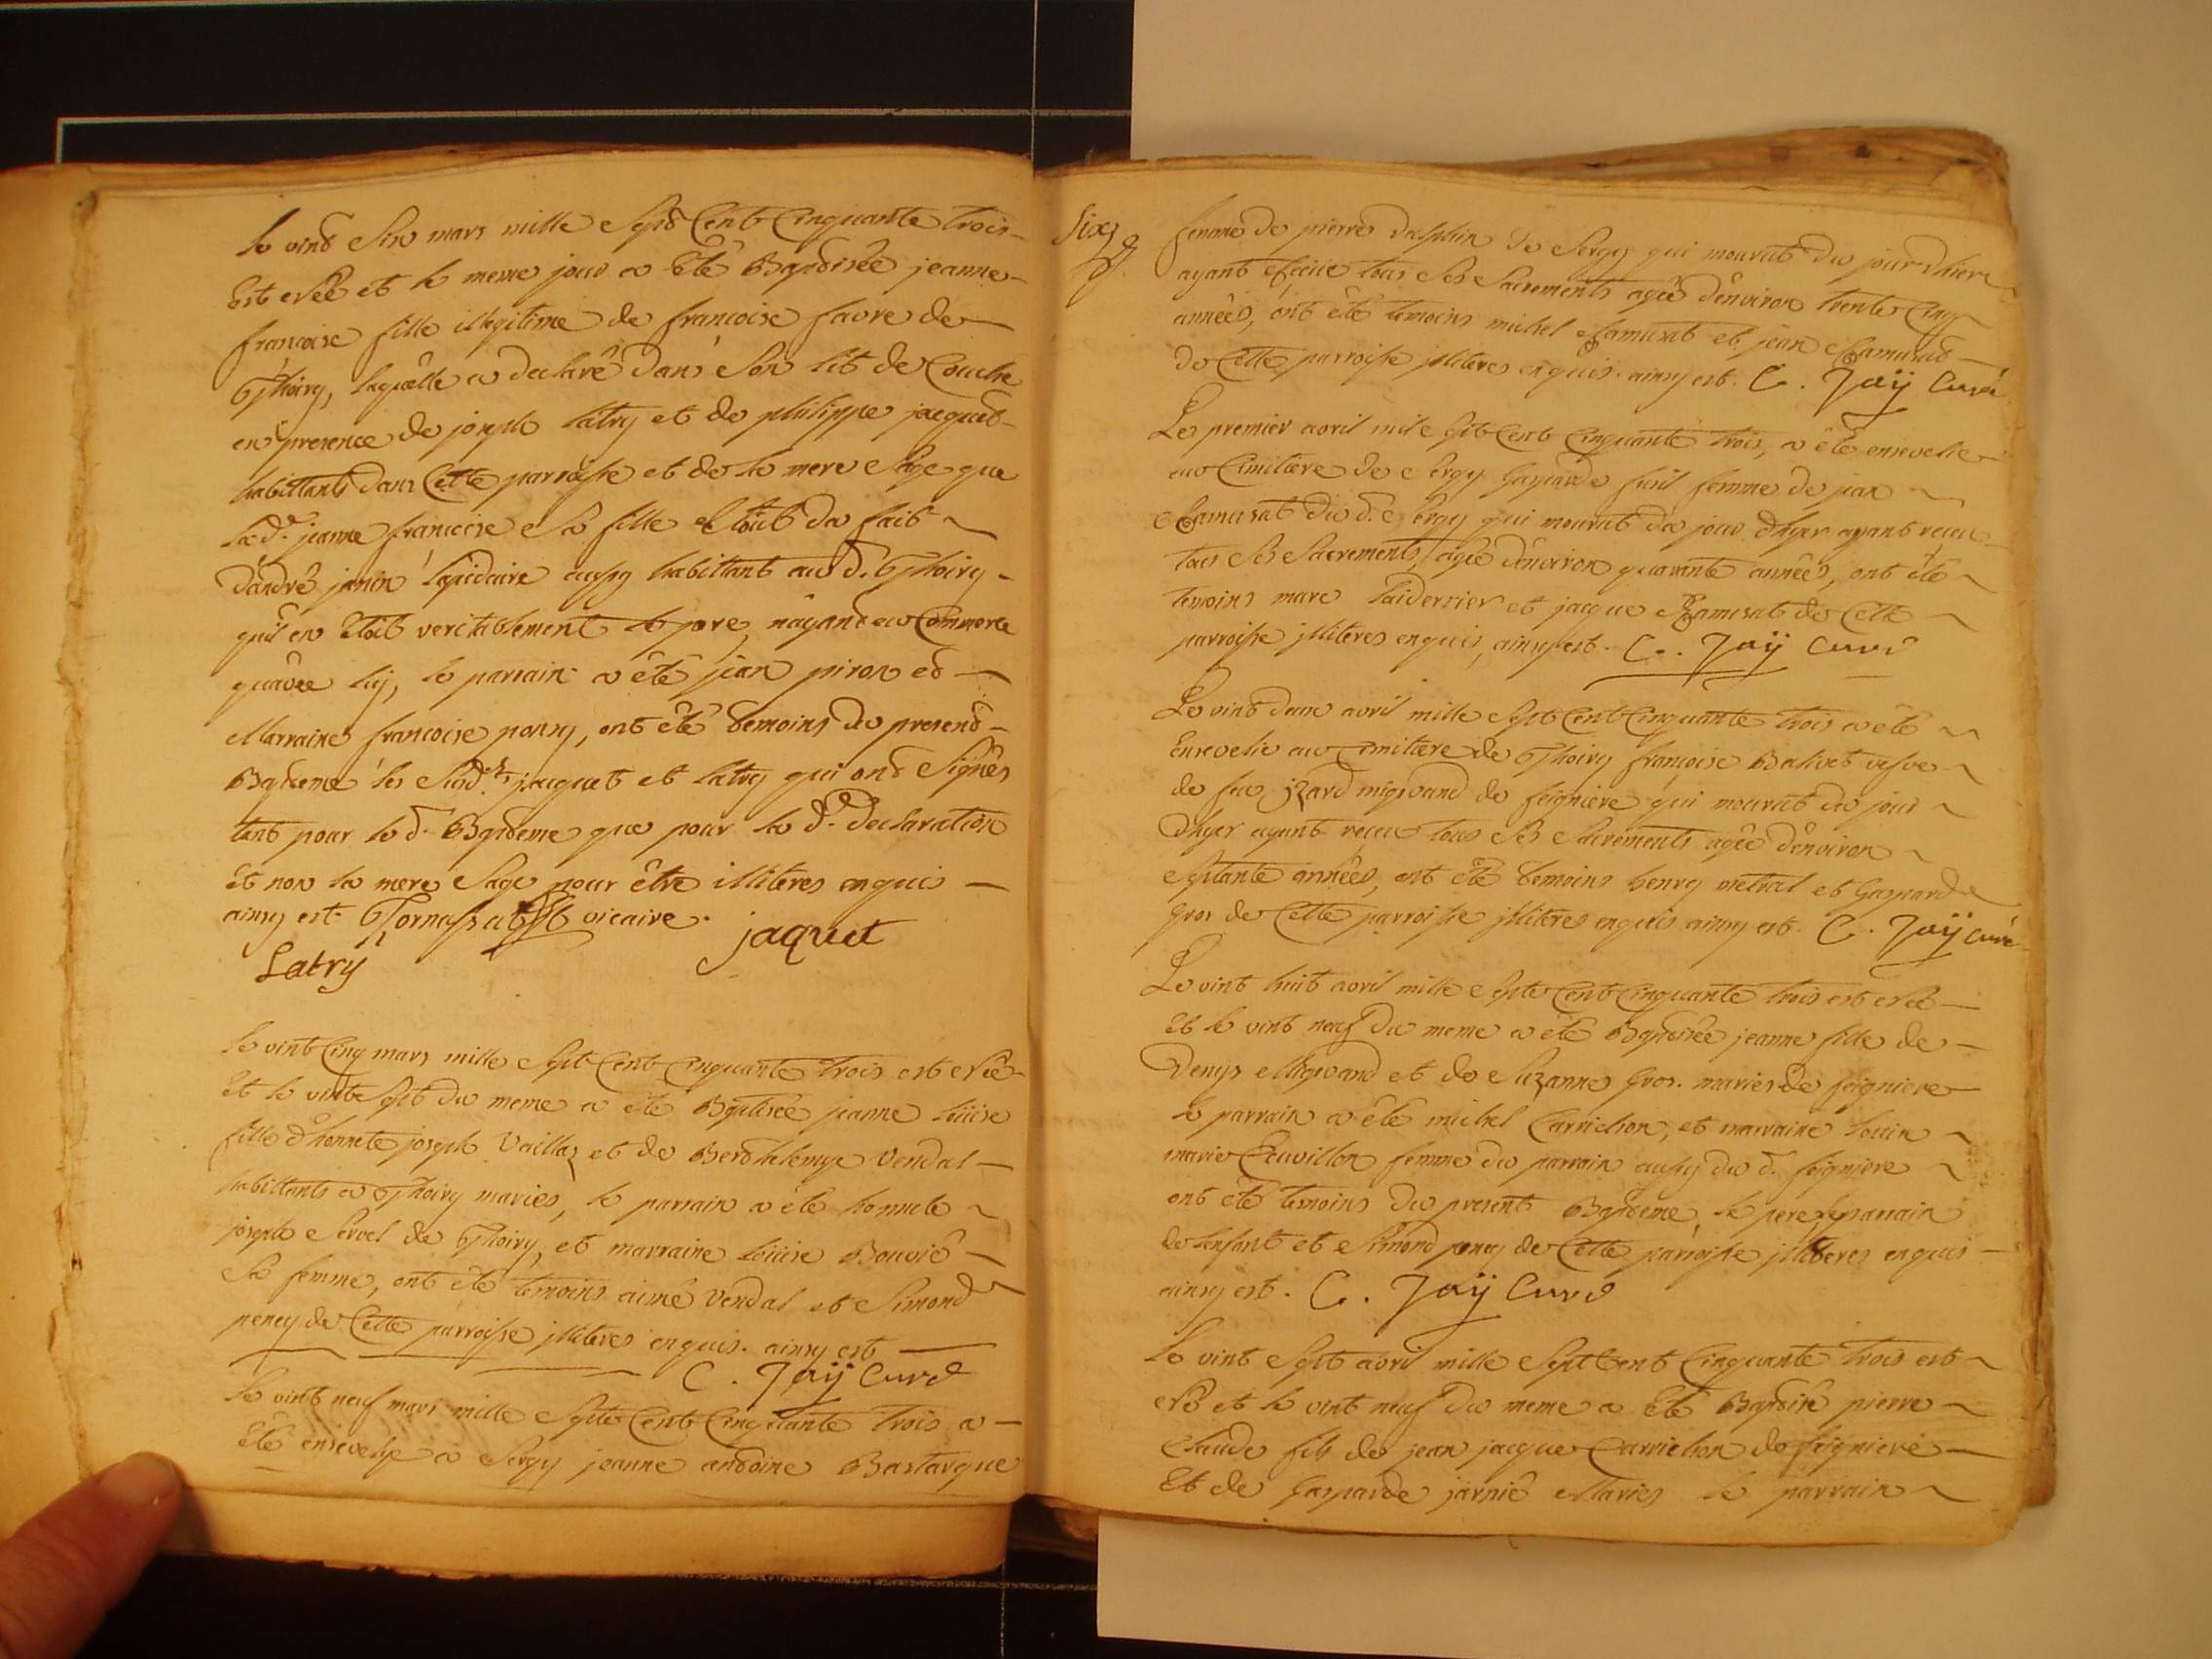 le vint six mars mille sept Cent Cinquante trois
Est née et le meme jour a Eté Baptisée jeanne
francoise fille illegitime de francoise favre de
Thoiry, laquelle a declaré dans son lit de Couche
en presence de joseph Latry et de philippe jacquet
habittants dans Cette parroisse et de la mere sage que
lad.e jeanne francoise sa fille Etoit du fait
d'andré janin lapidaire aussy habittant aud. Thoiry
quil en Etoit veritablement le pere, n'ayant eu Commerce
qu'avec luy, le parrain a été jean piron et
Marraine francoise ponny, ont été temoins du present
Bapteme les susd.ts jaquet et latry qui ont signés
tant pour le d. Bapteme que pour la d.e declaration
et non la mere sage pour être illiteres enquis
ainsy est. Tornassat vicaire. jaquet
Latrÿ
le vint Cinq mars mille sept Cent Cinquante trois est née
Et le vint sept du meme a été Baptisée jeanne loüise
fille d'honnete joseph Vaillaz et de Berthelemye Vendal
habittants a Thoiry mariés, le parrain a été honnete
joseph servel de Thoiry, et marraine loüise Bouvié
sa femme, ont été temoins aimé Vendal et simond
peney de Cette parroisse jlliteres enquis. ainsy est
C. Jaÿ Curé
le vint neuf mars mille septe Cent Cinquante trois a
été ensevelye a sergy jeanne andoine Bastarque
Six
femme de pierre dalphin de sergy qui mourut du jour d'hier
ayant reçue tous ses sacrements agée d'environ trente Cinq
années, ont été temoins michel ramusat et jean ramusat
de Cette parroisse jlliteres enquis. ainsy est. C. Jaÿ Curé
Le premier avril mile sept Cent Cinquante trois, a été ensevelie
au Cimitiere de sergy Gasparde furil femme de jean
ramusat dud. sergy qui mourut du jour d'hyer ayant receu
tous ses sacrements, agée d'environ quarante années, ont été
temoins marc laidernier et jacque ramusat de Cette
parroisse jlliteres enquis, ainsy est. C. Jaÿ Curé
Le vint deux avril mille sept Cent Cinquante trois a été
Ensevelie au cimitiere de Thoiry françoise Balivet vefve
de feu jzard migvand de feigniere qui mourut du jour
d'hyer ayant receu tous ses sacrements agée d'environ
septante années, ont été temoins henry metral et Gaspard
Gros de Cette parroisse jlliteres enquis ainsy est. C. Jaÿ Curé
Le vint huit avril mille septe Cent Cinquante trois est née
Et le vint neuf du meme a été Baptisée jeanne fille de
Denys Migvand et de suzanne Gros. mariés de feigniere
le parrain a été michel Carrichon, et marraine
marie femme du parrain aussy dud. feigniere
ont été temoins du present Bapteme, le pere, le parrain
de lenfant et simond peney de Cette parroisse jlliteres enquis
ainsy est. C. Jaÿ Curé
le vint sept avril mille sept Cent Cinquante trois est
né et le vint neuf du meme a Eté Baptisé pierre
Claude fils de jean jacque Carrichon de feigniere
Et de Gasparde jarnié Mariés le parrain